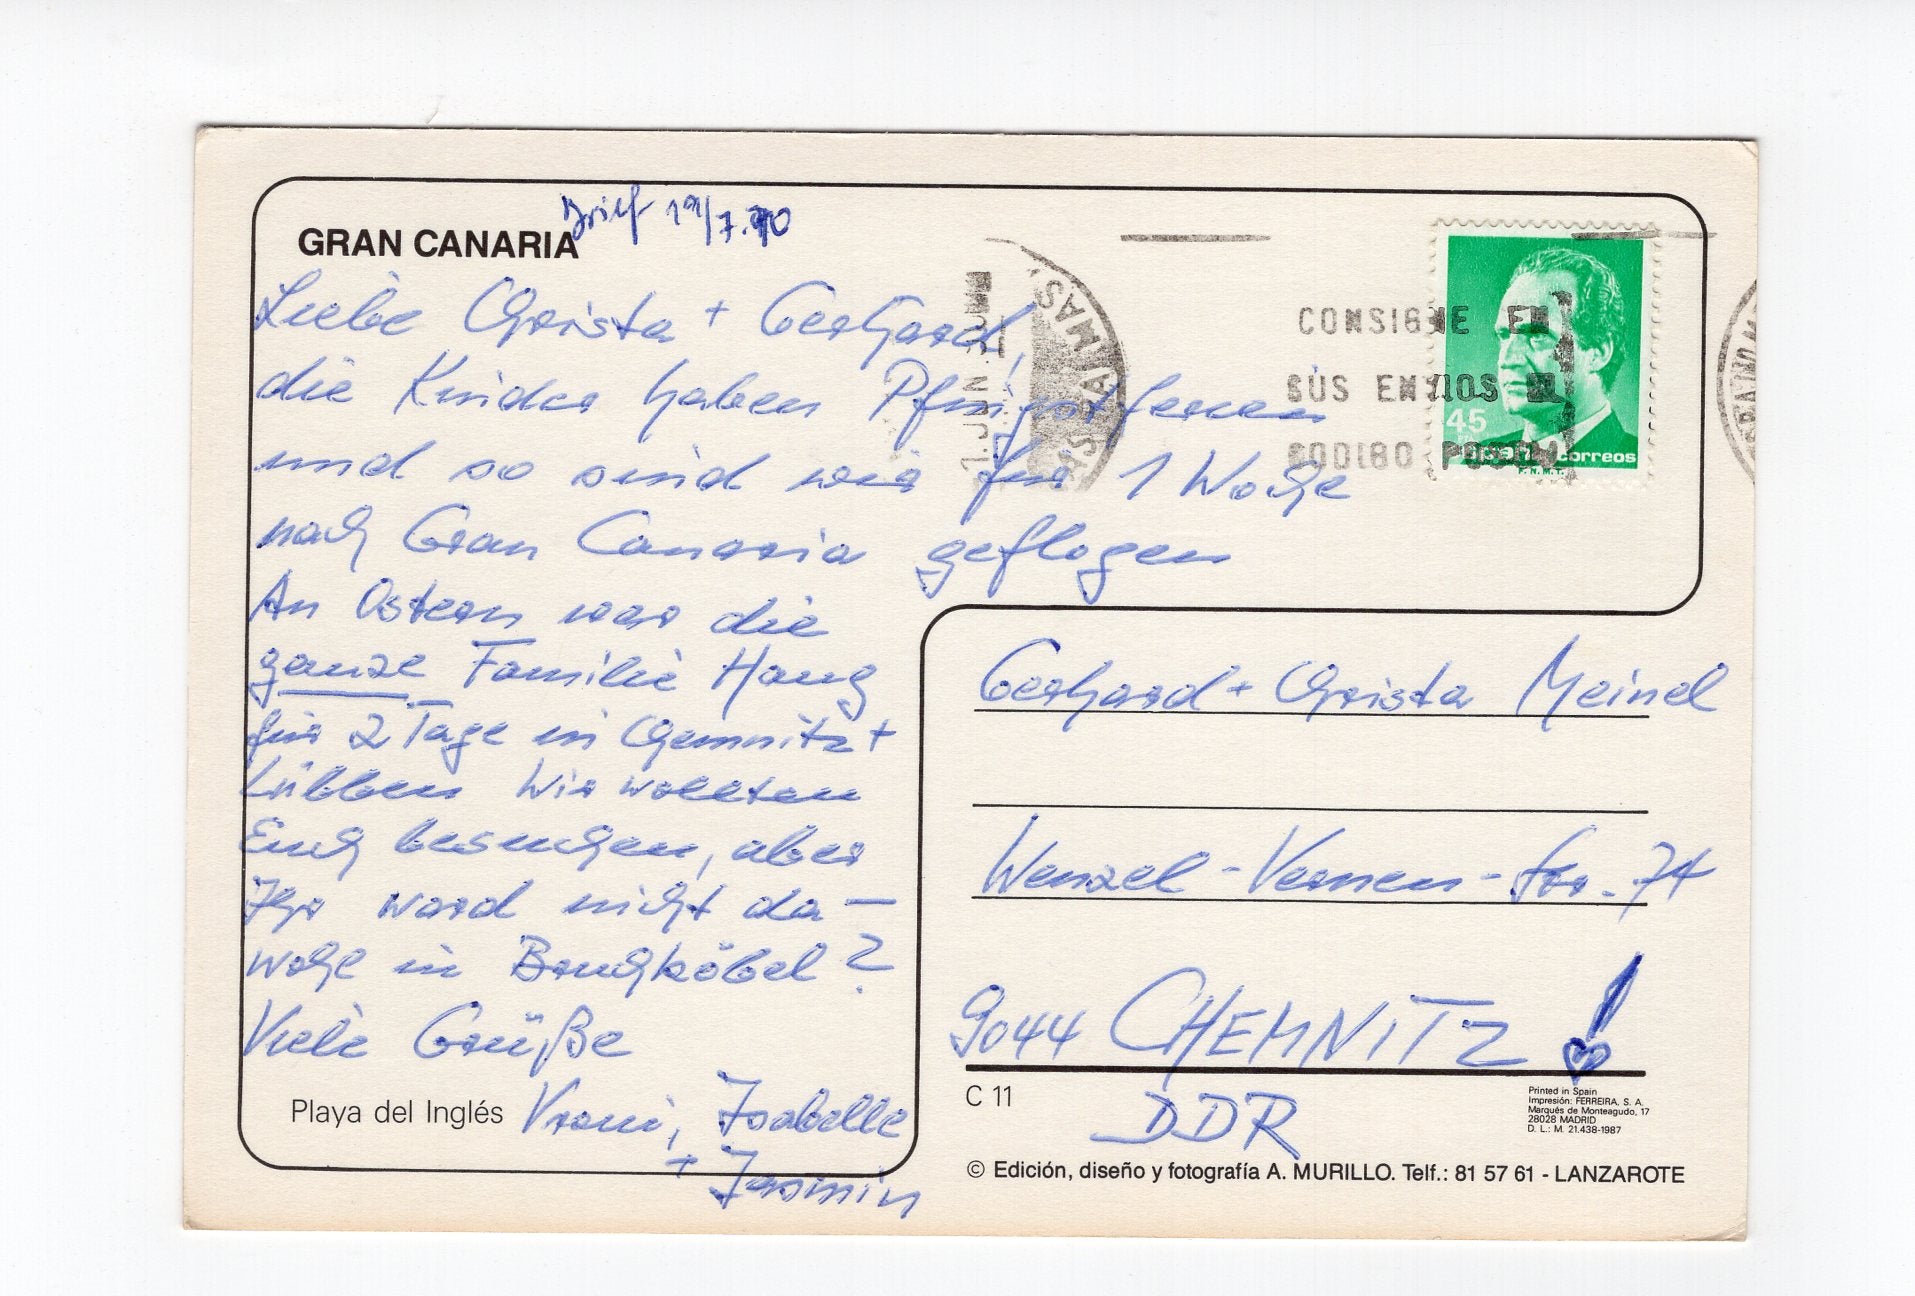 GRAN CANARIA
Brief 19/7.90
Liebe Christa + Gerhard,
die Kinder haben Pfingstferien
und so sind wir für 1 Woche
nach Gran Canaria geflogen
An Ostern war die
ganze Familie Haug
für 2 Tage in Chemnitz +
Lübben Wir wollten
Euch besuchen, aber
Ihr ward nicht da –
wohl in Bruchköbel?
Viele Grüße
Vroni, Isabelle
+ Jasmin
Playa del Inglés
LAS PALMAS
1. JUN
CONSIGNE EN
SUS ENVIOS EL
CODIGO POSTAL
45
España correos
F.N.M.T.
Gerhard + Christa Meinel
Wenzel-Verner-Str. 74
9044 CHEMNITZ !
DDR
C 11
Printed in Spain
Impresión: FERREIRA, S. A.
Marqués de Monteagudo, 17
28028 MADRID
D. L.: M. 21.438-1987
© Edición, diseño y fotografía A. MURILLO. Telf.: 81 57 61 - LANZAROTE